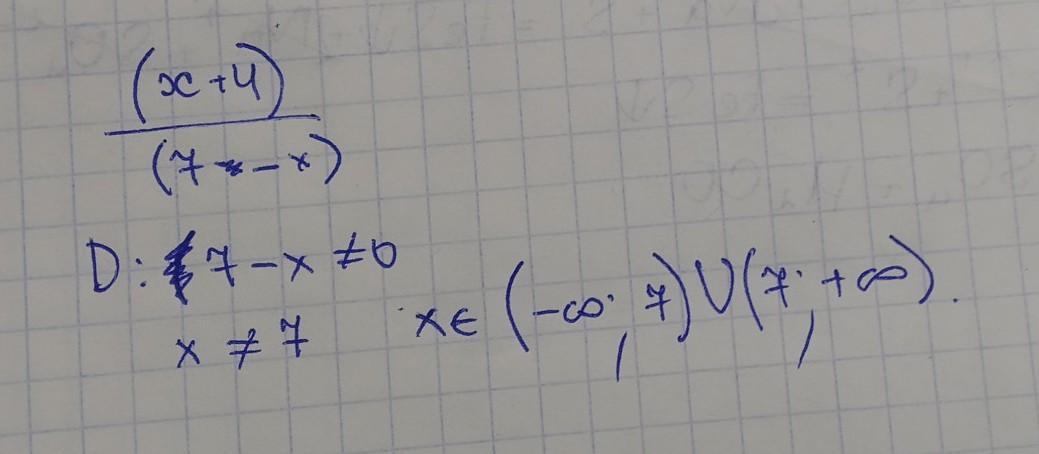 (x+4)
(7 - x)
D: 7-x ≠ 0
x ≠ 7
x ∈ (-∞; 7) U (7; +∞).